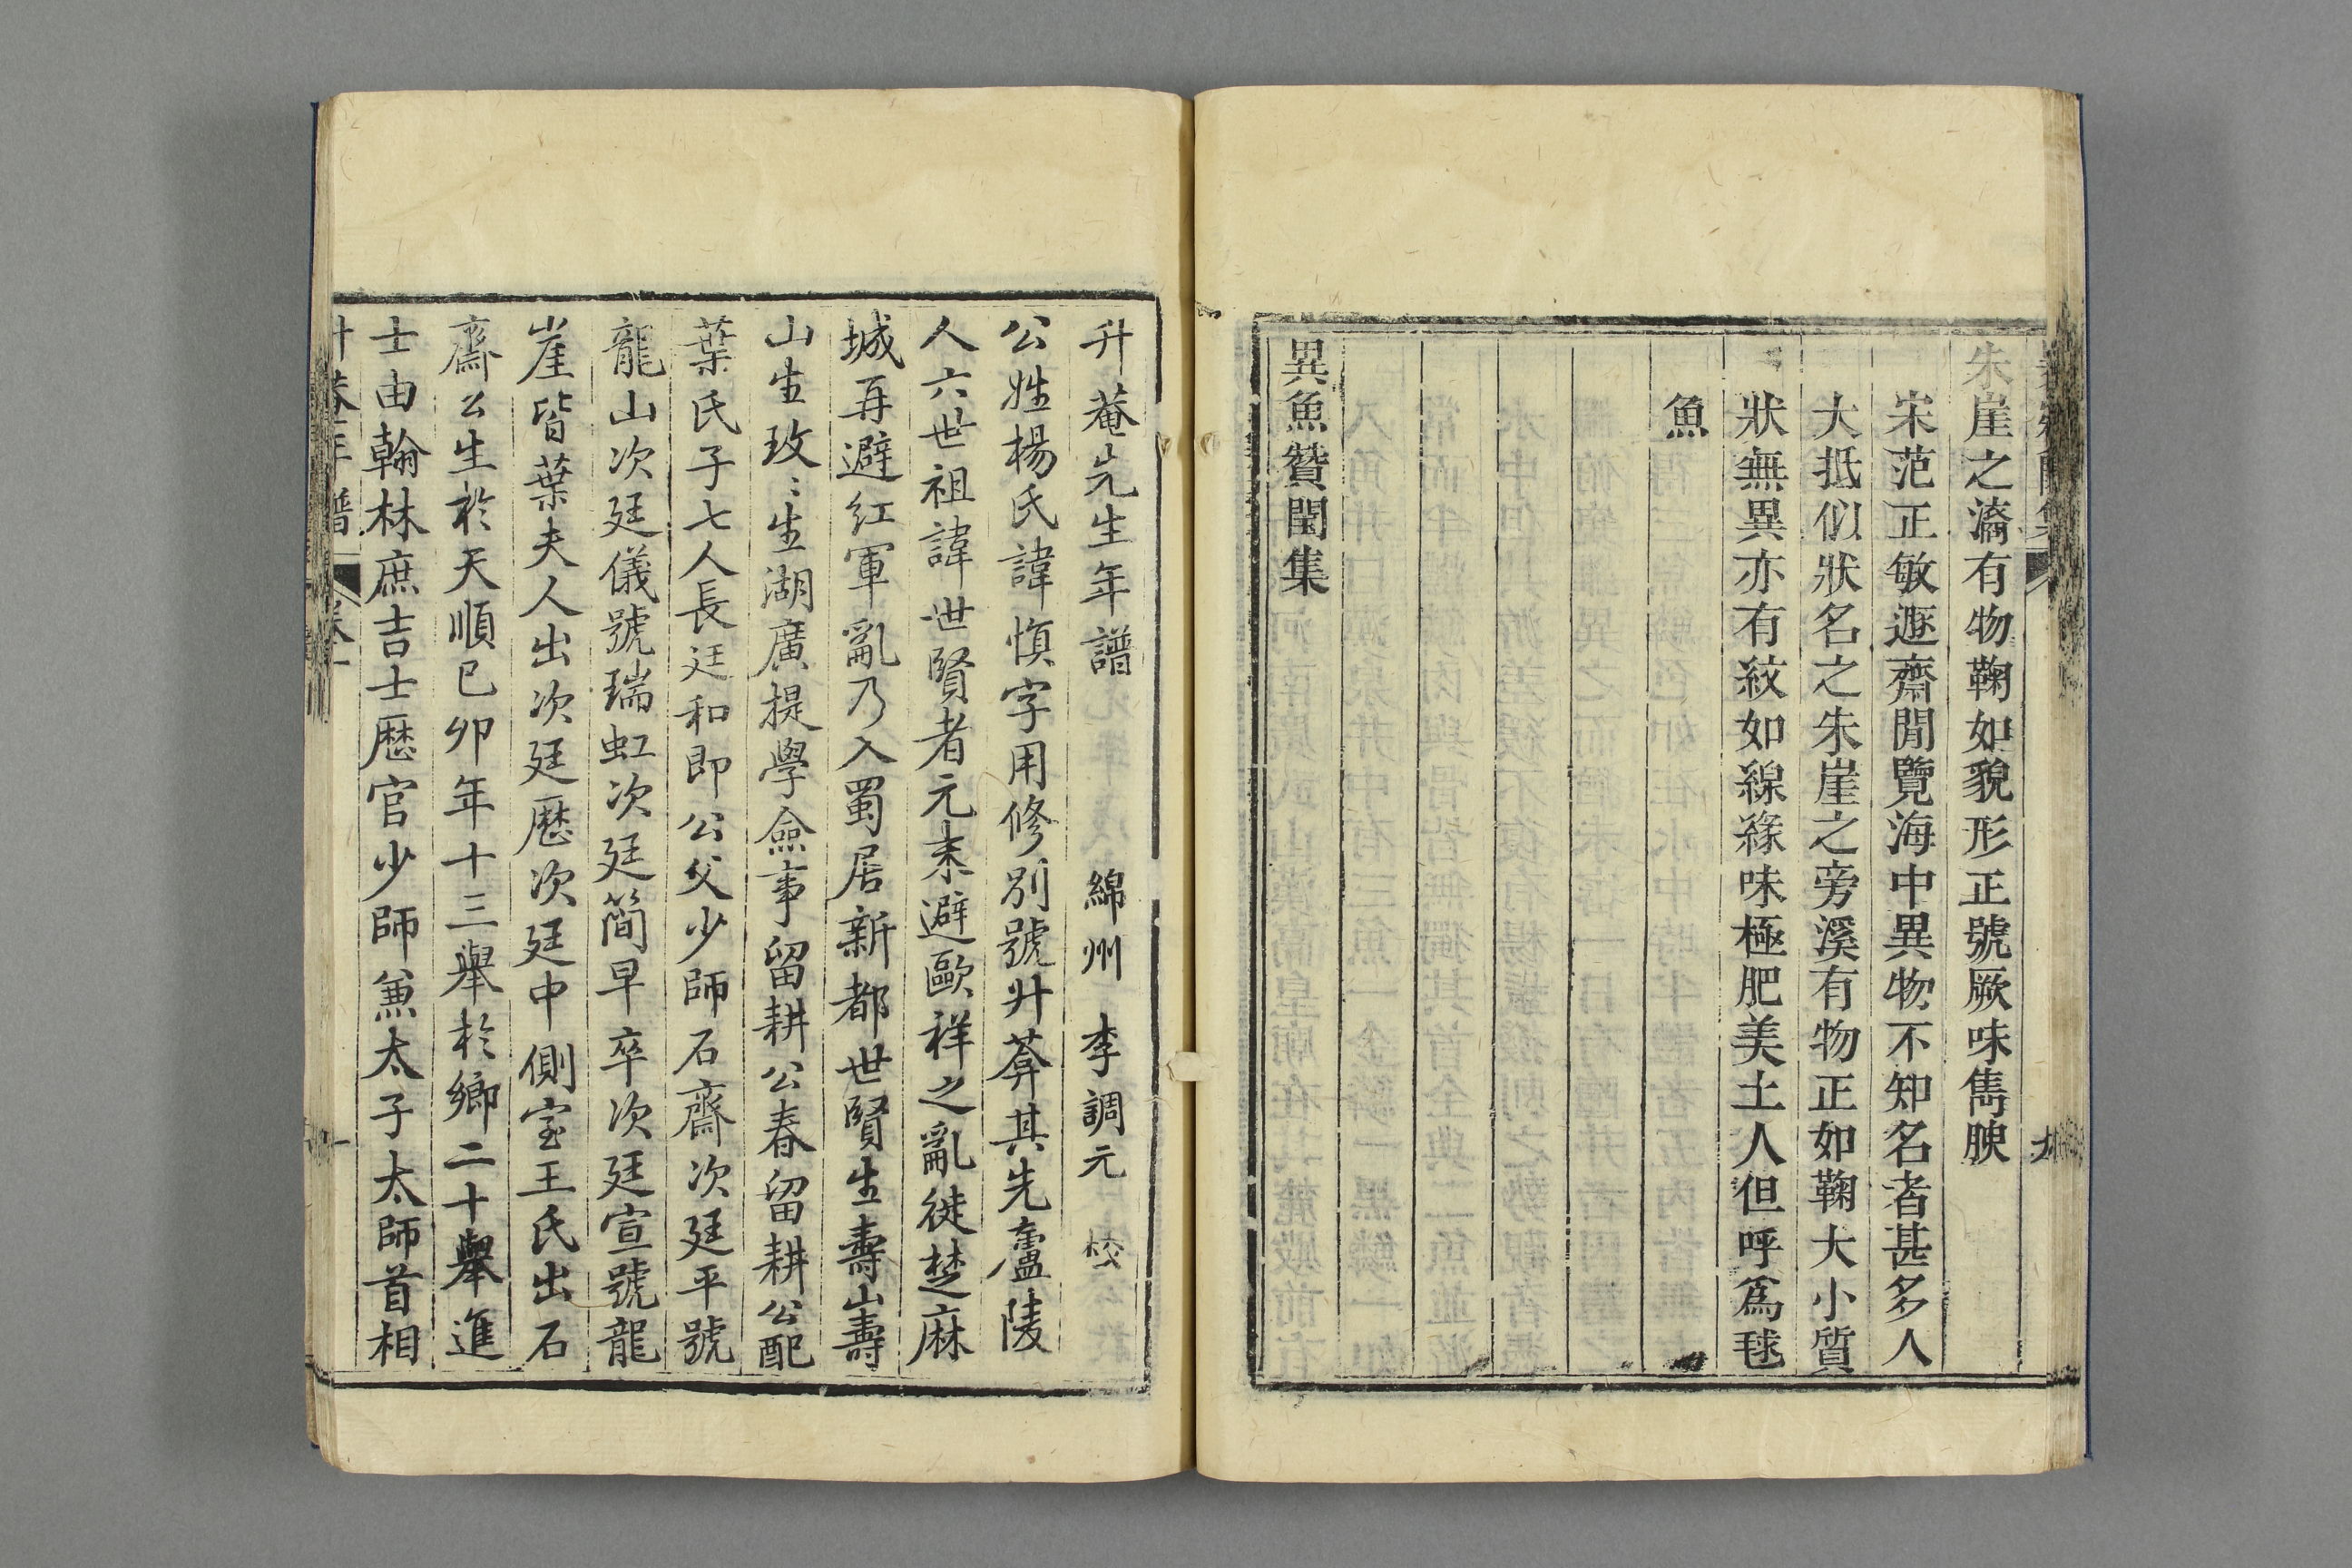 朱崖之濤有物鞠如貌形正號厥味雋腴
宋范正敏遯齋閒覽海中異物不知名者甚多人
大抵似狀名之朱崖之旁溪有物正如鞠大小質
狀無異亦有紋如線緣味極肥美土人但呼爲毬
魚
異魚贊閏集
升菴先生年譜
綿州 李調元 校
公姓楊氏諱慎字用修別號升菴其先廬陵
人六世祖諱世賢者元末避歐祥之亂徙楚麻
城再避紅軍亂乃入蜀居新都世賢生壽山壽
山生玫〻生湖廣提學僉事留耕公春留耕公配
葉氏子七人長廷和即公父少師石齋次廷平號
龍山次廷儀號瑞虹次廷簡早卒次廷宣號龍
崖皆葉夫人出次廷歷次廷中側室王氏出石
齋公生於天順己卯年十三舉於鄉二十舉進
士由翰林庶吉士歷官少師兼太子太師首相